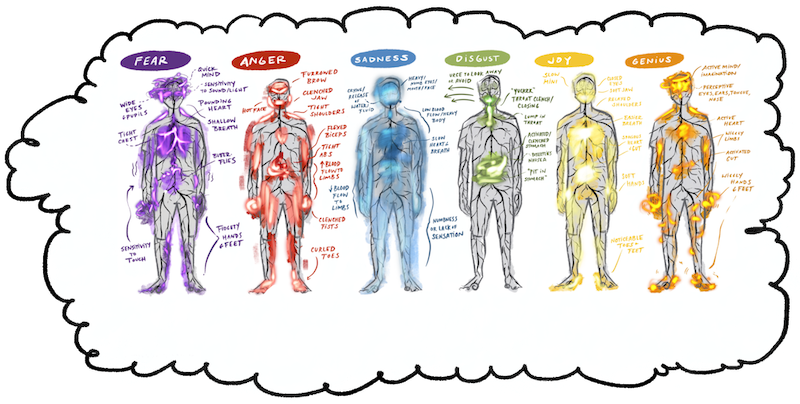 FEAR
QUICK
MIND
SENSITIVITY
TO SOUND/LIGHT
WIDE
EYES
& PUPILS
POUNDING
HEART
SHALLOW
BREATH
TIGHT
CHEST
BUTTER-
FLIES
SENSITIVITY
TO
TOUCH
FIDGETY
HANDS
& FEET
ANGER
FURROWED
BROW
CLENCHED
JAW
TIGHT
SHOULDERS
HOT FACE
FLEXED
BICEPS
TIGHT
ABS
↑BLOOD
FLOW TO
LIMBS
CLENCHED
FISTS
CURLED
TOES
SADNESS
CRYING/
RELEASE OF
WATER/
FLUID
HEAVY/
LOW BLOOD
FLOW/HEAVY
BODY
SLOW
HEART &
BREATH
↓BLOOD
FLOW
TO
LIMBS
NUMBNESS
OR LACK OF
SENSATION
DISGUST
URGE TO LOOK AWAY
OR AVOID
"PUKER"
THROAT CLENCH/
CLOSING
LUMP IN
THROAT
ACTIVATED/
CLENCHED
STOMACH
NAUSEA
"PIT IN
STOMACH"
JOY
SLOW
MIND
EYES
SOFT JAW
RELAXED
SHOULDERS
BREATH
SOFT
HANDS
NOTICEABLE
FEET
GENIUS
ACTIVE MIND/
IMAGINATION
PERCEPTIVE
EYES, EARS, TONGUE,
NOSE
ACTIVE
HEART
WIGGLY
LIMBS
ACTIVATED
GUT
WIGGLY
HANDS
& FEET